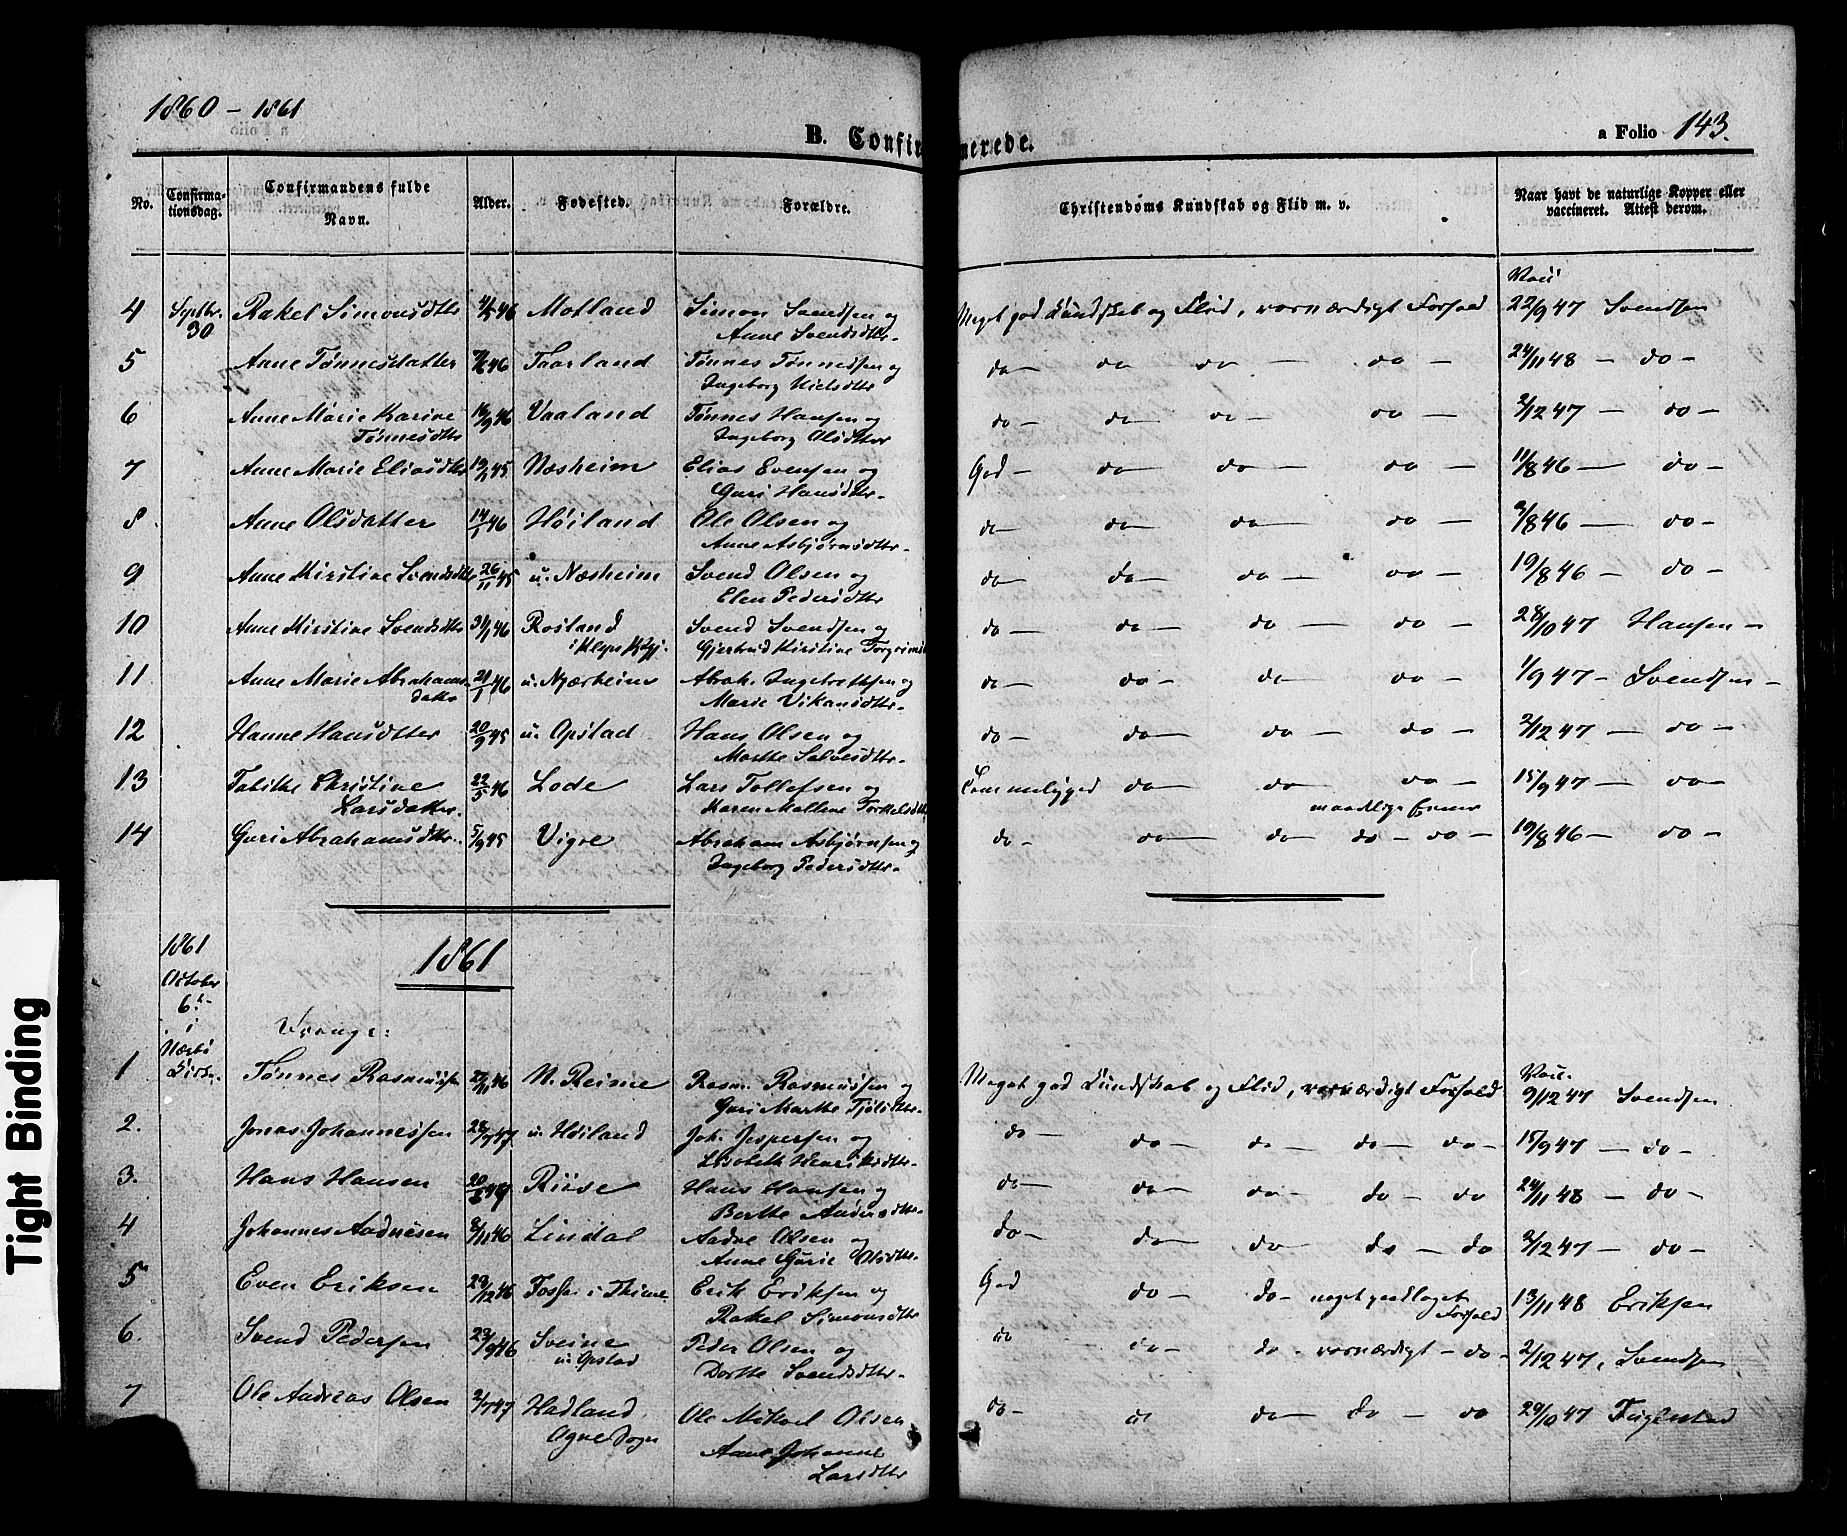 1860 - 1861
B. Confirmerede.
a Folio 143.
No. Confirmationsdag. Confirmandens fulde Navn. Alder. Fødested. Forældre. Christendoms Kundskab og Flid m. v. Naar havt de naturlige Kopper eller vaccineret. Attest derom.
Vac:
4 Septbr. 30 Rakel Simonsdtr 4/5 46 Motland Simon Svendsen og Anne Svendsdtr. Meget god Kundskab og Flid, vornærdigt Forhold 22/9 47 Svendsen
5 Anne Tønnesdatter 7/5 46 Taarland Tønnes Tønnessen og Ingeborg Nielsdtr do — do do — do — 24/11 48 — do —
6 Anne Marie Karine Tønnesdtr 16/9 46 Vaaland Tønnes Hansen og Ingeborg Olsdtter do — do do — do — 2/12 47 — do —
7 Anne Marie Eliasdtr 19/1 45 Næsheim Elias Evensen og Guri Hansdtr. God — do — do — do — 11/8 46 — do —
8 Anne Olsdatter 14/1 46 Høiland Ole Olsen og Anne Asbjørnsdtr. do — do — do — do — 3/8 46 — do —
9 Anne Kirstine Svendsdtr 26/11 45 u. Næsheim Svend Olsen og Elen Pedersdtr do — do — do — do — 19/8 46 — do —
10 Anne Kirstine Svendsdtr 31/1 46 Rosland i Klep Kgj. Svend Svendsen og Gjertrud Kirstine Torgrimsd do — do — do — do — 28/10 47 Hansen —
11 Anne Marie Abrahamsdatter 21/1 46 u. Njærheim Abrah. Ingebrethsen og Marie Vikansdtr. do — do — do — do — 1/9 47 — Svendsen —
12 Hanne Hansdtter 20/9 45 u. Opstad Hans Olsen og Marthe Salvesdtr. do — do — do — do — 2/12 47 — do —
13 Tabithe Christine Larsdatter. 22/5 46 Lode Lars Tollefsen og Karen Mallene Torkelsdtr Temmeligged do — do do — 15/9 47 — do —
maadlige Evner
14 Guri Abrahamsdtr. 5/9 45 Vigre Abraham Asbjørnsen og Ingeborg Pedersdtr. do — do — do do — do — 19/8 46 — do —
1861
October
6te
i
Nærbø
Kirke.
1861
Drenge:
Vac:
1 Tønnes Rasmussen 27/11 46 N. Reime Rasm. Rasmussen og Guri Marthe Tjølsdtr. Meget god Kundskab og Flid, vornærdigt Forhold 9/12 47 Svendsen
2. Jonas Johannessen 28/7 47 u. Høiland Joh. Jespersen og Lisabeth Henriksdtr. do — do — do — do — do — 15/9 47 — do —
3. Hans Hansen Riise Hans Hansen og Berthe Andersdtr. do — do — do — do — do 24/11 48 — do —
4 Johannes Aadnesen 8/11 46 Lindal Aadne Olsen og Anne Gurie Olsdtr. do — do — do — do — do 2/12 47 — do —
5 Even Eriksen 29/12 46 Fosse i Thime. Erik Eriksen og Rakel Simonsdtr God do — do — Forhold 13/11 48 Eriksen
6. Svend Pedersen 23/9 46 Sveine u. Opstad Peder Olsen og Dorthe Svendsdtr. do do — do — vornærdigt — do — 2/12 47, Svendsen
7 Ole Andreas Olsen 2/7 47 Hadland Ogne Sogn Ole Mikael Olsen Anne Johanne Larsdtr do — do — do — do 29/10 47 Fuglestad
Tight Binding